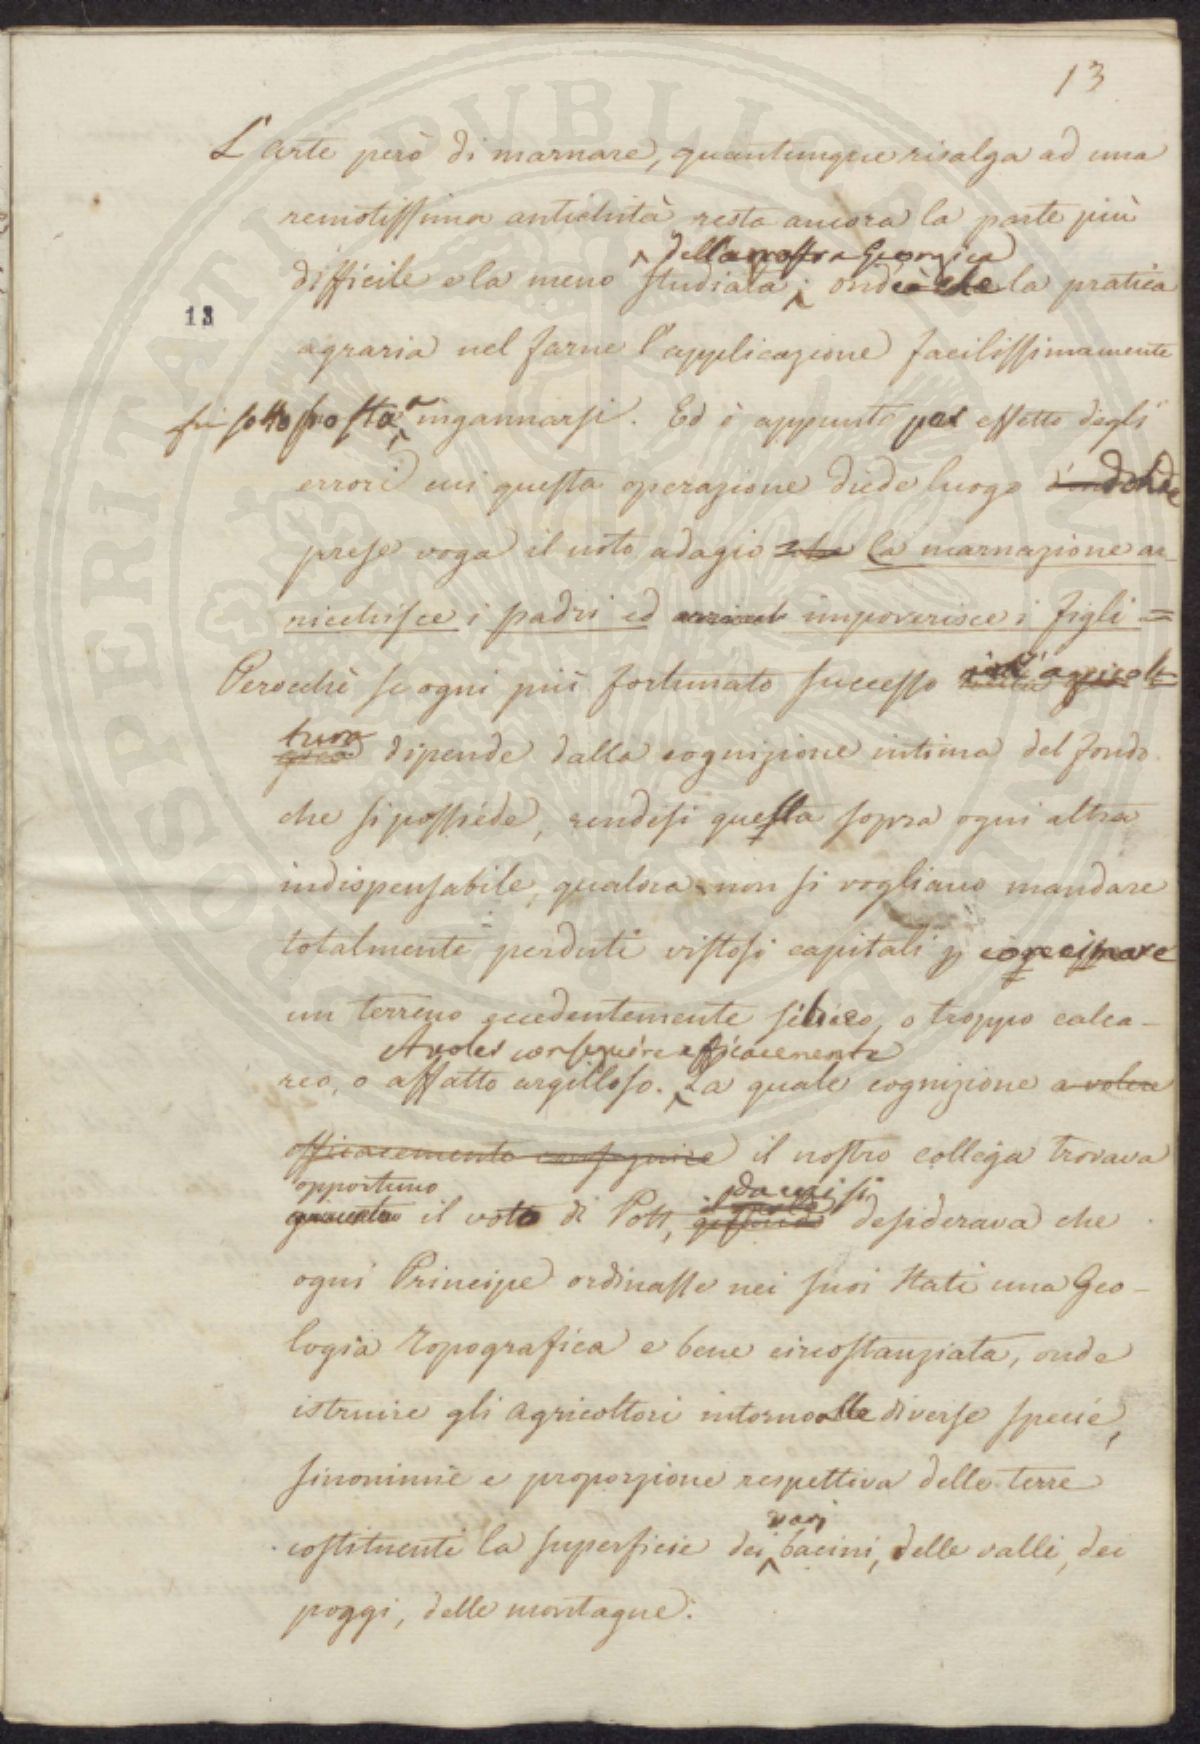 13
L'arte però di marnare, quantunque risalga ad una
remotissima antichità resta ancora la parte più
della nostra Georgica
difficile e la meno studiata; ond'è che la pratica
13
agraria nel farne l'applicazione facilissimamente
fu sottoposta a ingannarsi. Ed è appunto per effetto degli
errori cui questa operazione diede luogo donde
prese voga il noto adagio La marnazione ar-
ricchisce i padri ed impoverisce i figli =
Perocchè se ogni più fortunato successo agricol
tura
dipende dalla cognizione intima del fondo
che si possiede, rendesi questa sopra ogni altra
indispensabile, qualora non si vogliano mandare
totalmente perduti vistosi capitali p
un terreno eccedentemente siliceo, o troppo calca-
A voler conseguire efficacemente
reo, o affatto argilloso. La quale cognizione a voler
efficacemente conseguire il nostro collega trovava
opportuno da cui si
il voto di Pott, desiderava che
ogni Principe ordinasse nei suoi Stati una Geo-
logia Topografica e bene circostanziata, onde
istruire gli agricoltori intorno alle diverse specie,
sinonimie e proporzione respettiva delle terre
varj
costituenti la superficie dei bacini, delle valli, dei
poggi, delle montagne.